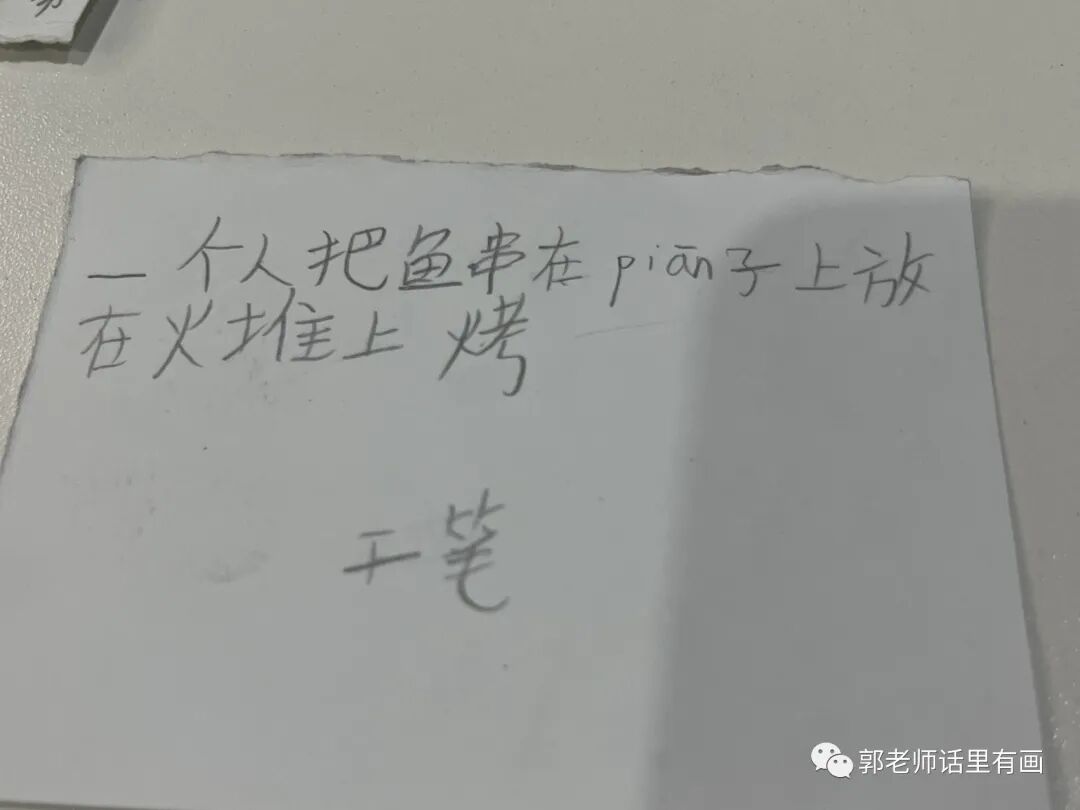 一个人把鱼串在piān子上放
在火堆上烤
工笔
郭老师话里有画